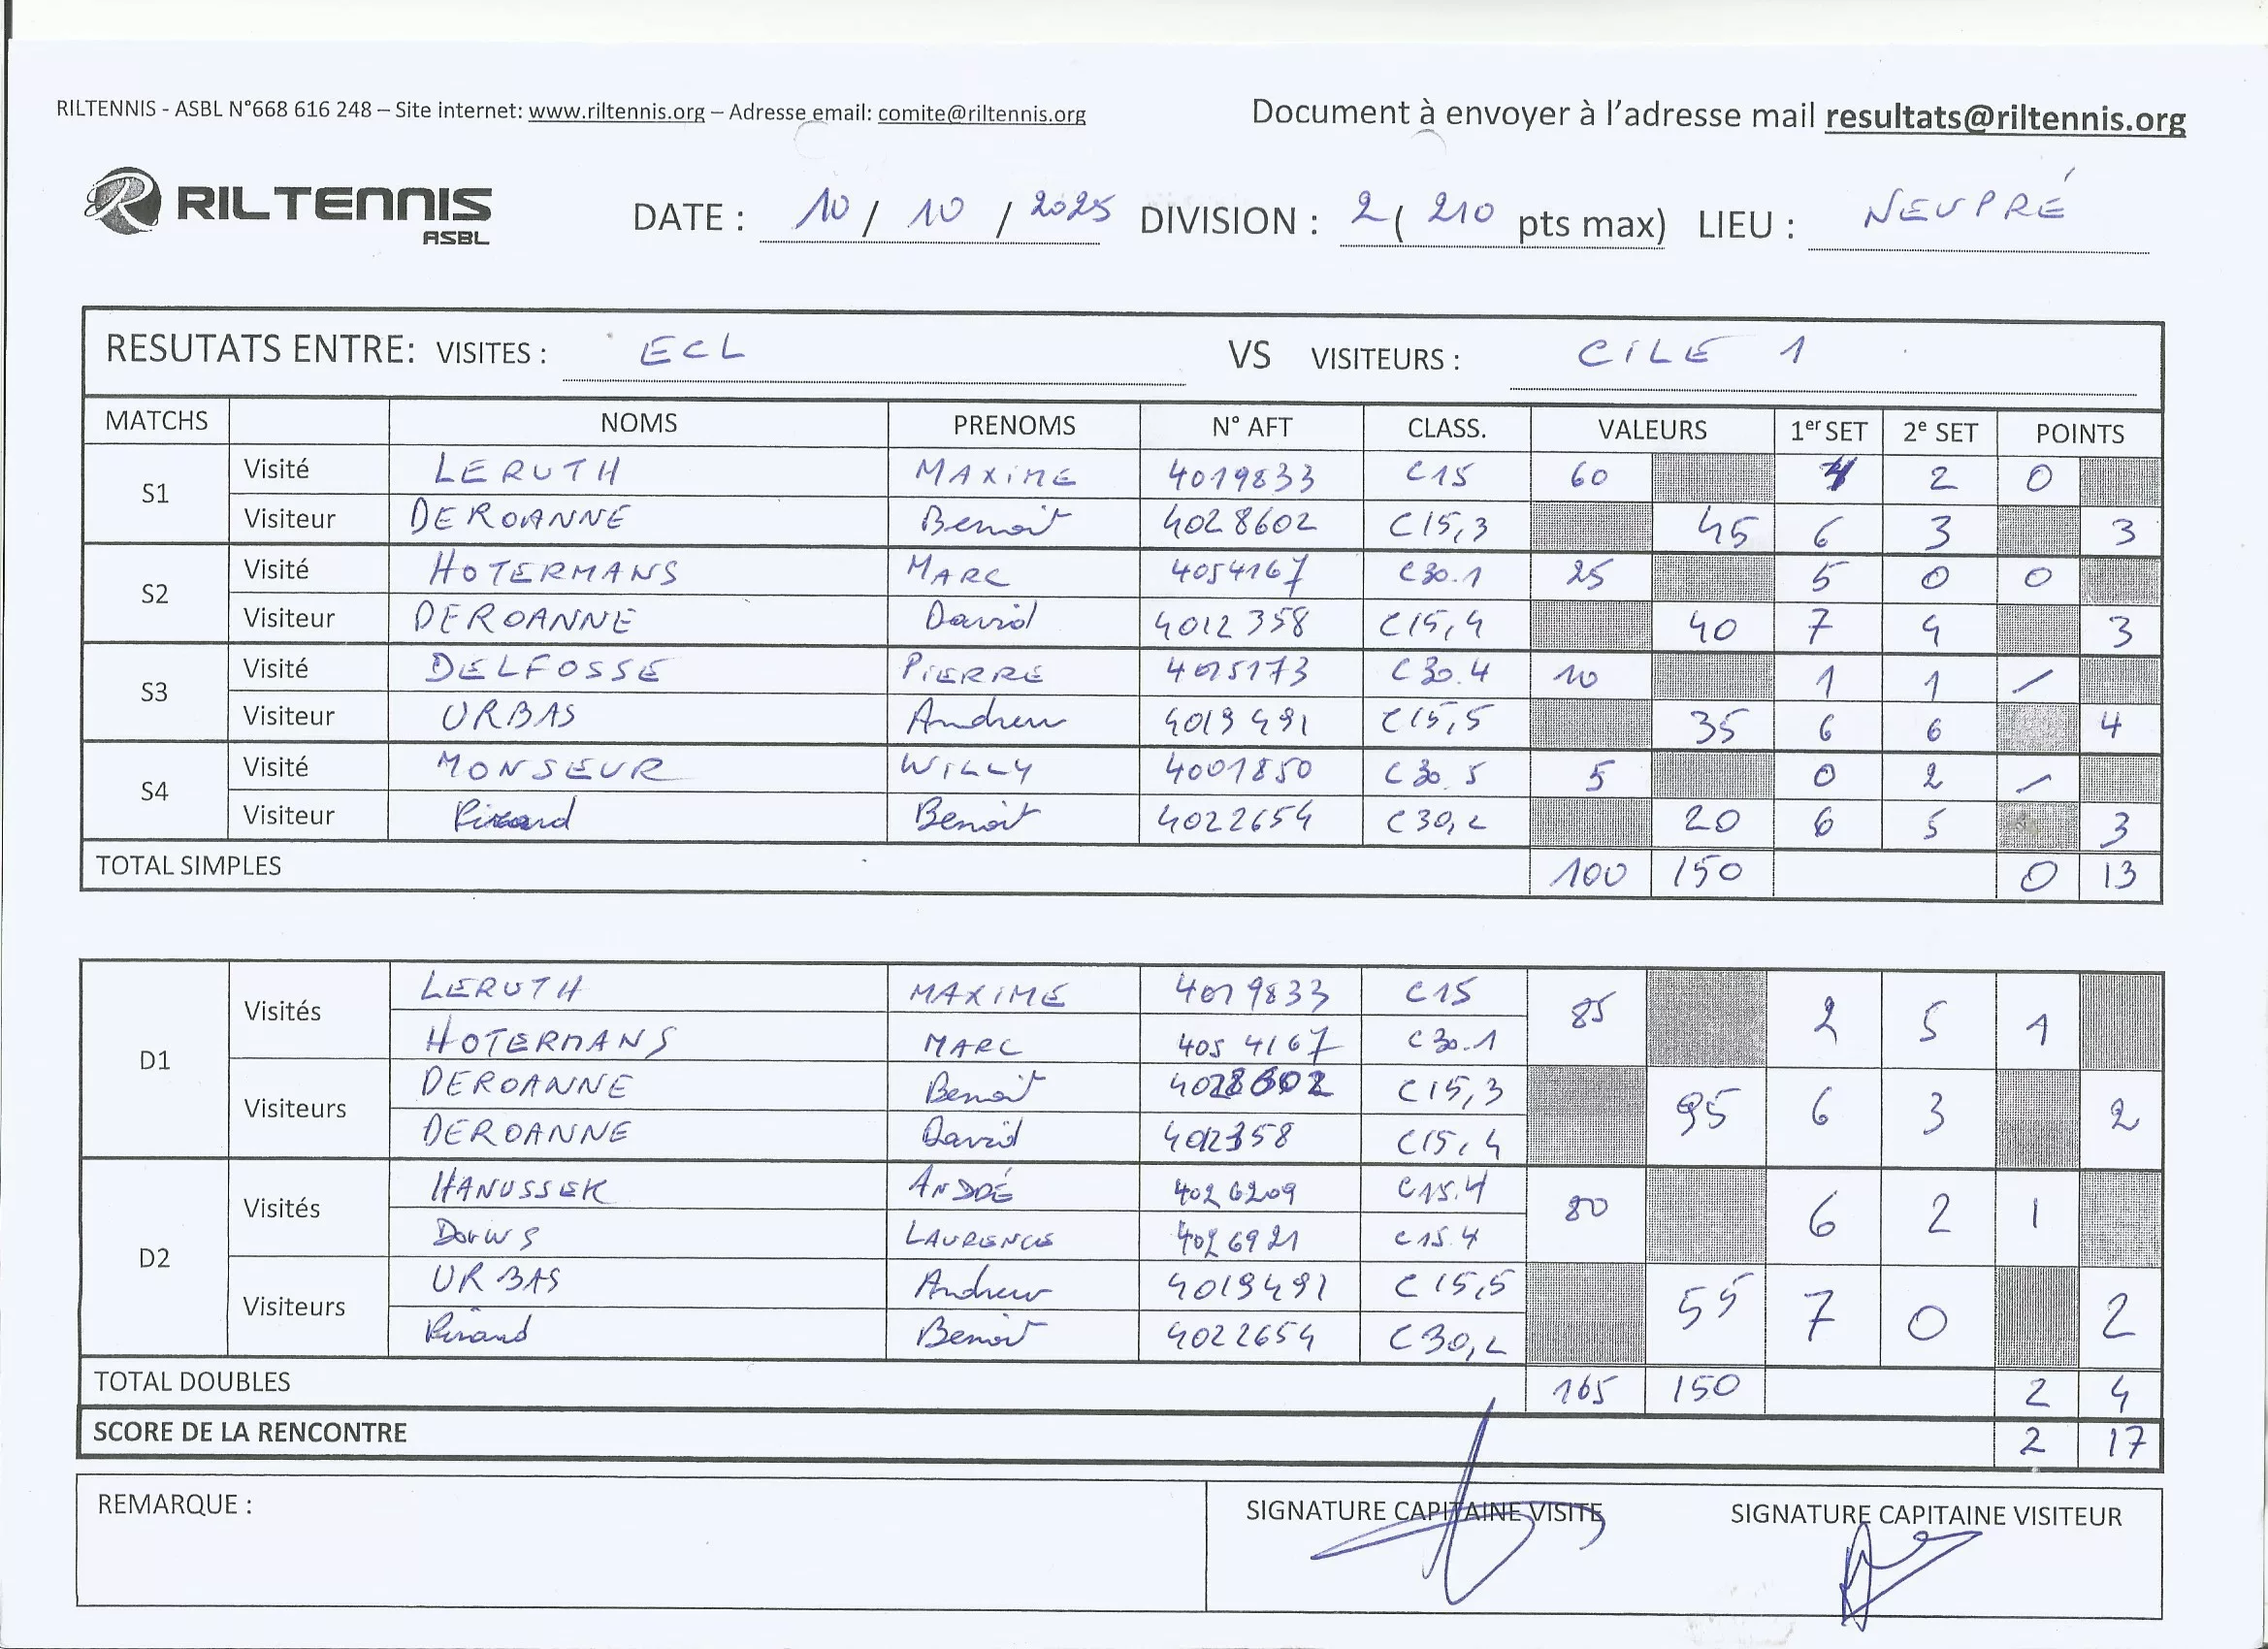 RILTENNIS - ASBL N°668 616 248 – Site internet: www.riltennis.org – Adresse email: comite@riltennis.org
Document à envoyer à l'adresse mail resultats@riltennis.org
RILTENNIS ASBL
DATE : 10 / 10 / 2025 DIVISION : 2 ( 210 pts max) LIEU : NEUPRÉ
RESUTATS ENTRE: VISITES : ECL VS VISITEURS : CILE 1
MATCHS NOMS PRENOMS N° AFT CLASS. VALEURS 1er SET 2e SET POINTS
S1
Visité LERUTH MAXIME 4019833 C15 60 4 2 0
Visiteur DEROANNE Benoit 4028602 C15,3 45 6 3 3
S2
Visité HOTERMANS MARC 4054167 C30.1 25 5 0 0
Visiteur DEROANNE David 4012358 C15,4 40 7 4 3
S3
Visité DELFOSSE PIERRE 4015173 C30.4 10 1 1 /
Visiteur URBAS Andrew 4019491 C15,5 35 6 6 4
S4
Visité MONSEUR WILLY 4001850 C30.5 5 0 2 /
Visiteur Benoit 4022654 C30,2 20 6 5 3
TOTAL SIMPLES 100 150 0 13
D1
Visités LERUTH MAXIME 4019833 C15 85 2 5 1
HOTERMANS MARC 4054167 C30.1
Visiteurs DEROANNE Benoit 4028602 C15,3 95 6 3 2
DEROANNE David 4012358 C15,4
D2
Visités HANUSSEK ANDRÉ 4026209 C15.4 80 6 2 1
4026921 C15.4
Visiteurs URBAS Andrew 4019491 C15,5 55 7 0 2
Benoit 4022654 C30,2
TOTAL DOUBLES 165 150 2 4
SCORE DE LA RENCONTRE 2 17
REMARQUE :
SIGNATURE CAPITAINE VISITE SIGNATURE CAPITAINE VISITEUR